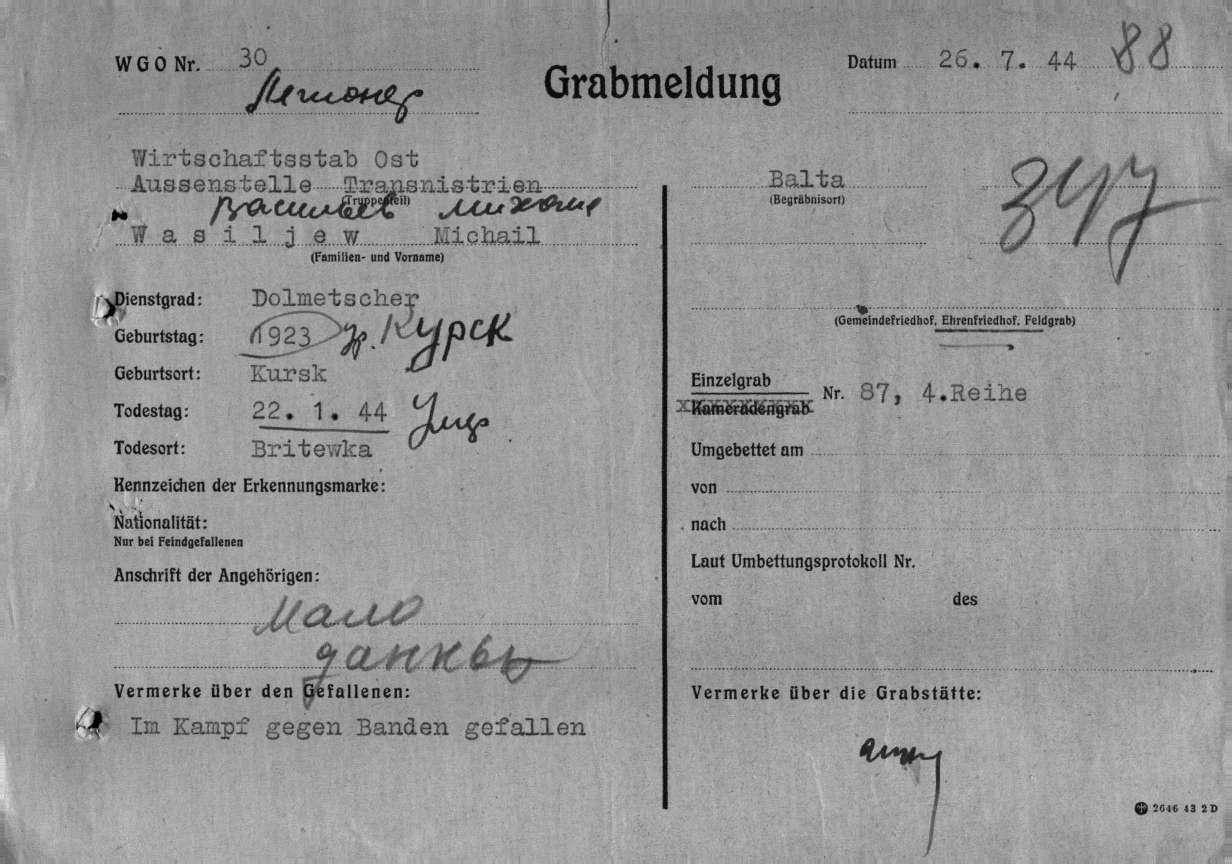 WGO Nr. 30
Легионер
Grabmeldung
Datum 26. 7. 44 88
Wirtschaftsstab Ost
Aussenstelle Transnistrien
(Truppenteil)
Васильев Михаил
Wasiljew Michail
(Familien- und Vorname)
Dienstgrad: Dolmetscher
Geburtstag: 1923
гр. Курск
Geburtsort: Kursk
Todestag: 22. 1. 44
Todesort: Britewka
Kennzeichen der Erkennungsmarke:
Nationalität:
Nur bei Feindgefallenen
Anschrift der Angehörigen:
Мало
данных
Vermerke über den Gefallenen:
Im Kampf gegen Banden gefallen
Balta
(Begräbnisort)
(Gemeindefriedhof, Ehrenfriedhof, Feldgrab)
Einzelgrab
Kameradengrab
Nr. 87, 4.Reihe
Umgebettet am
von
nach
Laut Umbettungsprotokoll Nr.
vom des
Vermerke über die Grabstätte:
2646 43 2 D